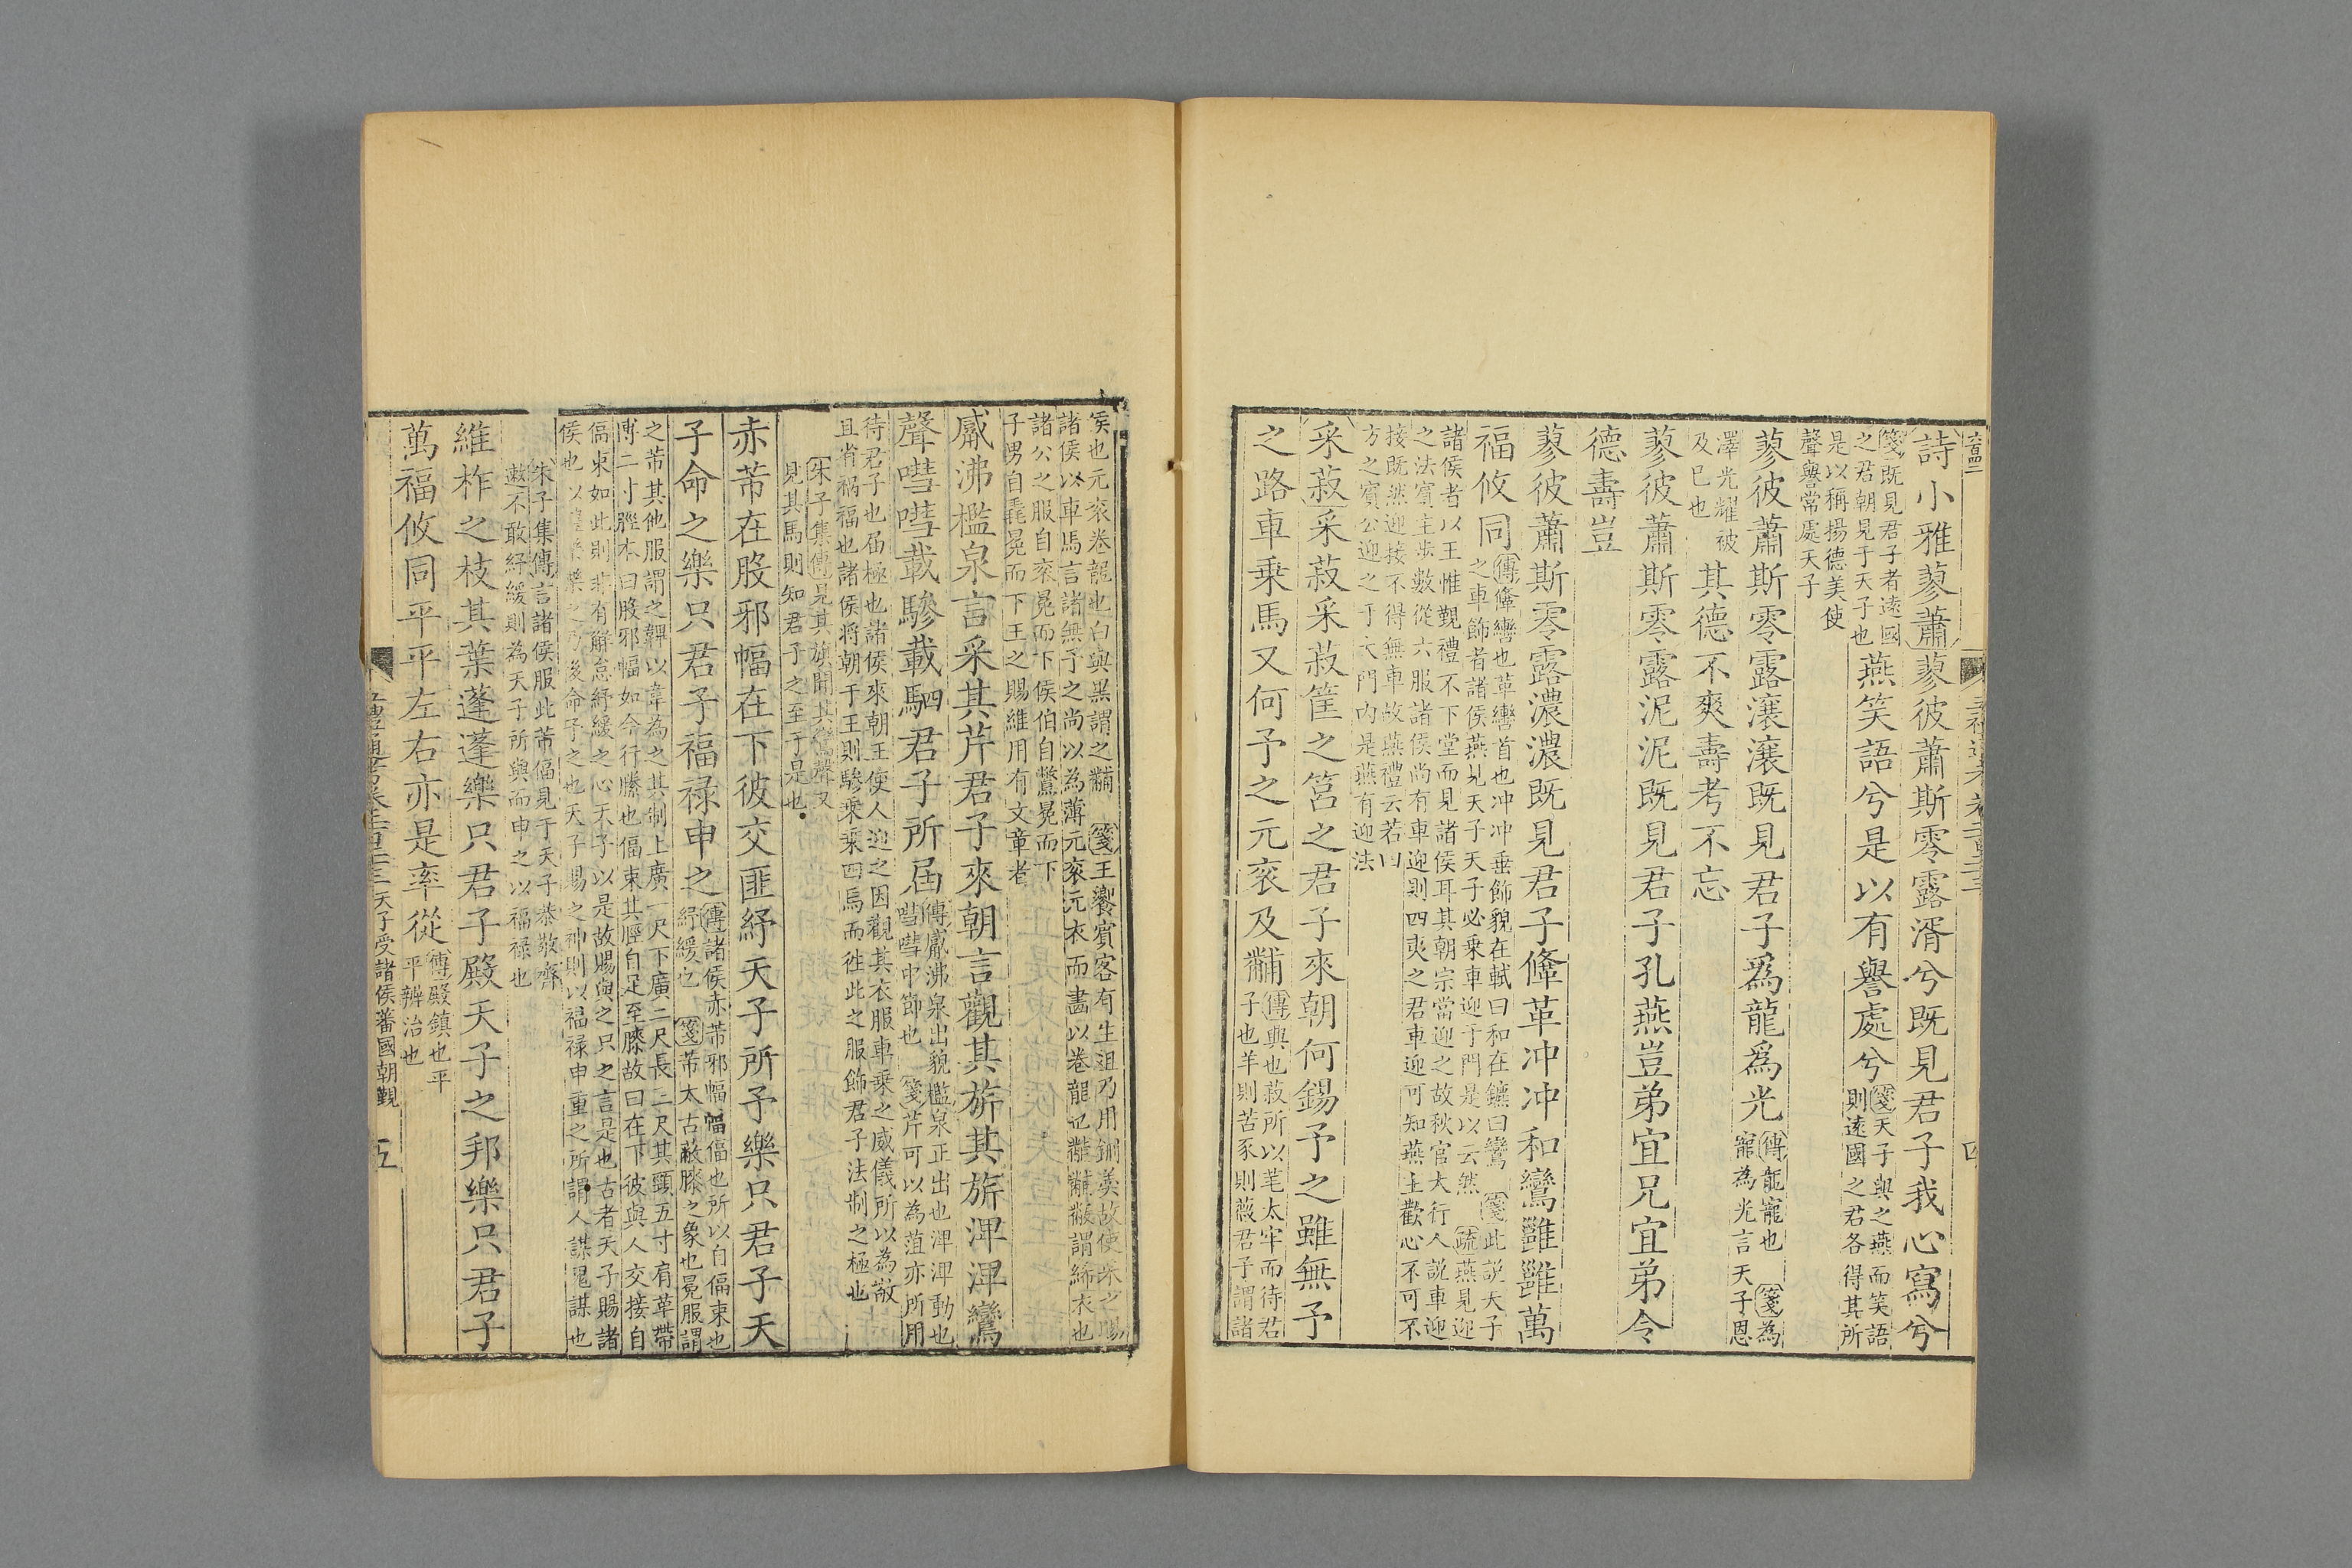 詩小雅蓼蕭蓼彼蕭斯零露湑兮既見君子我心寫兮
箋既見君子者遠國
之君朝見于天子也
是以稱揚德美使
聲譽常處天子
燕笑語兮是以有譽處兮
箋天子與之燕而笑語
則遠國之君各得其所
蓼彼蕭斯零露瀼瀼既見君子爲龍爲光
傳龍寵也 箋為
寵為光言天子恩
澤光耀被
及己也
其德不爽壽考不忘
蓼彼蕭斯零露泥泥既見君子孔燕豈弟宜兄宜弟令
德壽豈
蓼彼蕭斯零露濃濃既見君子鞗革冲冲和鸞雝雝萬
福攸同
傳鞗轡也革轡首也冲冲垂飾貌在軾曰和在鑣曰鸞 箋此說天子
之車飾者諸侯燕見天子天子必乗車迎于門是以云然 疏燕見迎
諸侯者以王惟覲禮不下堂而見諸侯耳其朝宗當迎之故秋官大行人説車迎
之法賓主步數從六服諸侯尚有車迎則四夷之君車迎可知燕主歡心不可不
接既然迎接不得無車故燕禮云若四
方之賓公迎之于大門内是燕有迎法
采菽采菽采菽筐之筥之君子來朝何錫予之雖無予
之路車乗馬又何予之元衮及黼
傳興也菽所以芼太牢而待君
子也羊則苦豕則薇君子謂諸
侯也元衮卷龍也白與黒謂之黼 箋王饗賓客有生俎乃用鉶羹故使采之賜
諸侯以車馬言諸無予之尚以為薄元衮元衣而畫以卷龍也黼黼黻謂絺衣也
諸公之服自衮冕而下侯伯自鷩冕而下
子男自毳冕而下王之賜維用有文章者
觱沸檻泉言采其芹君子來朝言觀其旂其旂淠淠鸞
聲嘒嘒載驂載駟君子所屆
傳觱沸泉出貌檻泉正出也淠淠動也
嘒嘒中節也 箋芹可以為菹亦所用
待君子也屆極也諸侯來朝王使人迎之因觀其衣服車乗之威儀所以為敬
且省禍福也諸侯将朝于王則驂乗乗四馬而徃此之服飾君子法制之極也
朱子集傳見其旂聞其鸞聲又
見其馬則知君子之至于是也
赤芾在股邪幅在下彼交匪紓天子所予樂只君子天
子命之樂只君子福禄申之
傳諸侯赤芾邪幅幅偪也所以自偪束也
紓緩也 箋芾太古蔽膝之象也冕服謂
之芾其他服謂之韠以韋為之其制上廣一尺下廣二尺長三尺其頸五寸肩革帶
博二寸脛本曰股邪幅如今行縢也偪束其脛自足至膝故曰在下彼與人交接自
偪束如此則非有解怠紓緩之心天子以是故賜與之只之言是也古者天子賜諸
侯也以禮樂樂之乃後命予之也天子賜之神則以福禄申重之所謂人謀鬼謀也
朱子集傳言諸侯服此芾偪見于天子恭敬齊
遫不敢紓緩則為天子所與而申之以福禄也
維柞之枝其葉蓬蓬樂只君子殿天子之邦樂只君子
萬福攸同平平左右亦是率從
傳殿鎮也平
平辨治也
五禮通考卷二百二十三 天子受諸侯蕃國朝覲 五